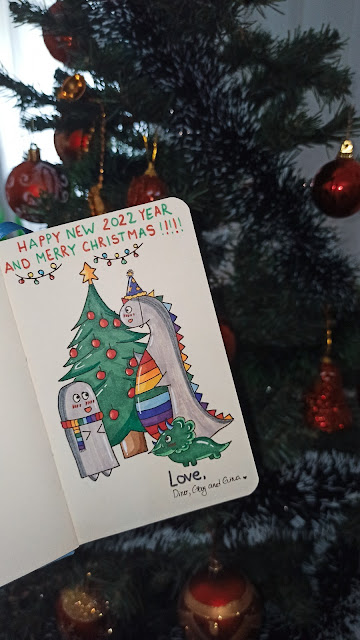 HAPPY NEW 2022 YEAR
AND MERRY CHRISTMAS !!!!!
Love,
Dino, and